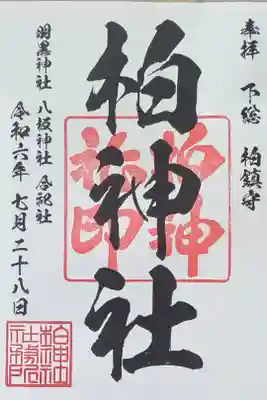 奉拝 下総 柏鎮守
柏神社
羽黒神社 八坂神社 合祀社
令和六年 七月二十八日
柏神
社印